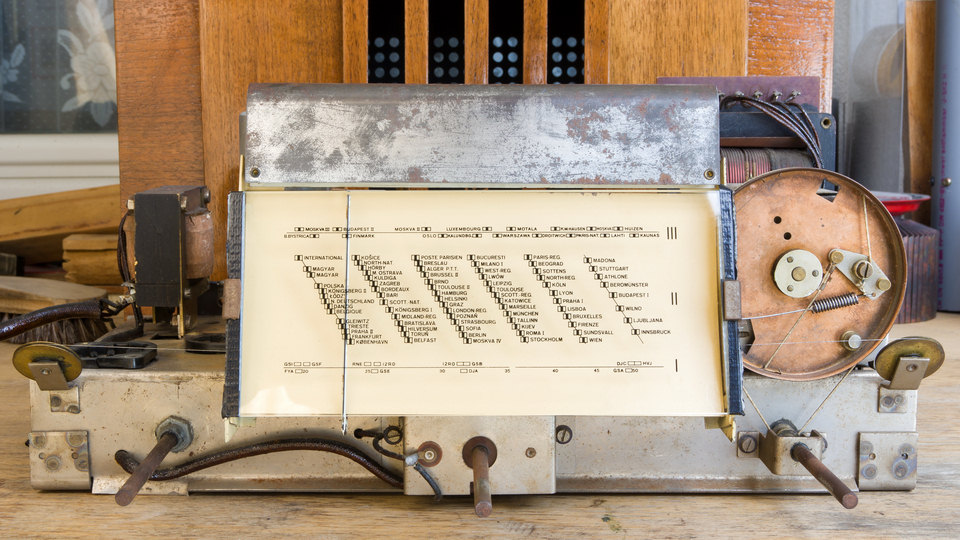 MOSKVA III BUDAPEST II MOSKVA II LUXEMBOURG MOTALA HUIZEN III
B.BYSTRICA FINMARK OSLO KALUNDBORG WARSZAWA DROITWICH PARIS-NAT LAHTI KAUNAS
INTERNATIONAL
MAGYAR
MAGYAR
POLSKA
KÖNIGSBERG II
ŁÓDŹ
DEUTSCHLAND
DANZIG
BELGIQUE
GLEIWITZ
TRIESTE
PRAHA II
FRANKFURT
KØBENHAVN
KOŠICE
NORTH-NAT.
HÖRBY
M. OSTRAVA
KULDIGA
ZAGREB
BORDEAUX
BARI
SCOT-NAT.
KÖNIGSBERG I
MIDLAND-REG.
BRATISLAVA
HILVERSUM
TORUŃ
BELFAST
POSTE PARISIEN
BRESLAU
ALGER P.T.T.
BRUSSEL II
BRNO
TOULOUSE II
HAMBURG
HELSINKI
GRAZ
LONDON-REG.
POZNAŃ
STRASBOURG
SOFIA
BERLIN
MOSKVA IV
BUCURESTI
MILANO I
WEST-REG.
LWÓW
LEIPZIG
TOULOUSE
SCOTT-REG.
KATOWICE
MARSEILLE
MÜNCHEN
TALLINN
KIJEV
ROMA I
STOCKHOLM
PARIS-REG.
BEOGRAD
SOTTENS
NORTH-REG.
KÖLN
LYON
PRAHA I
LISBOA
BRUXELLES
FIRENZE
SUNDSVALL
WIEN
MADONA
STUTTGART
ATHLONE
BEROMÜNSTER
BUDAPEST I
WILNO
LJUBLJANA
INNSBRUCK
II
GSI GSF RNE I2RO I2RO GSB DJC HVJ I
FYA 20 25 GSE 30 DJA 35 40 45 GSA 50